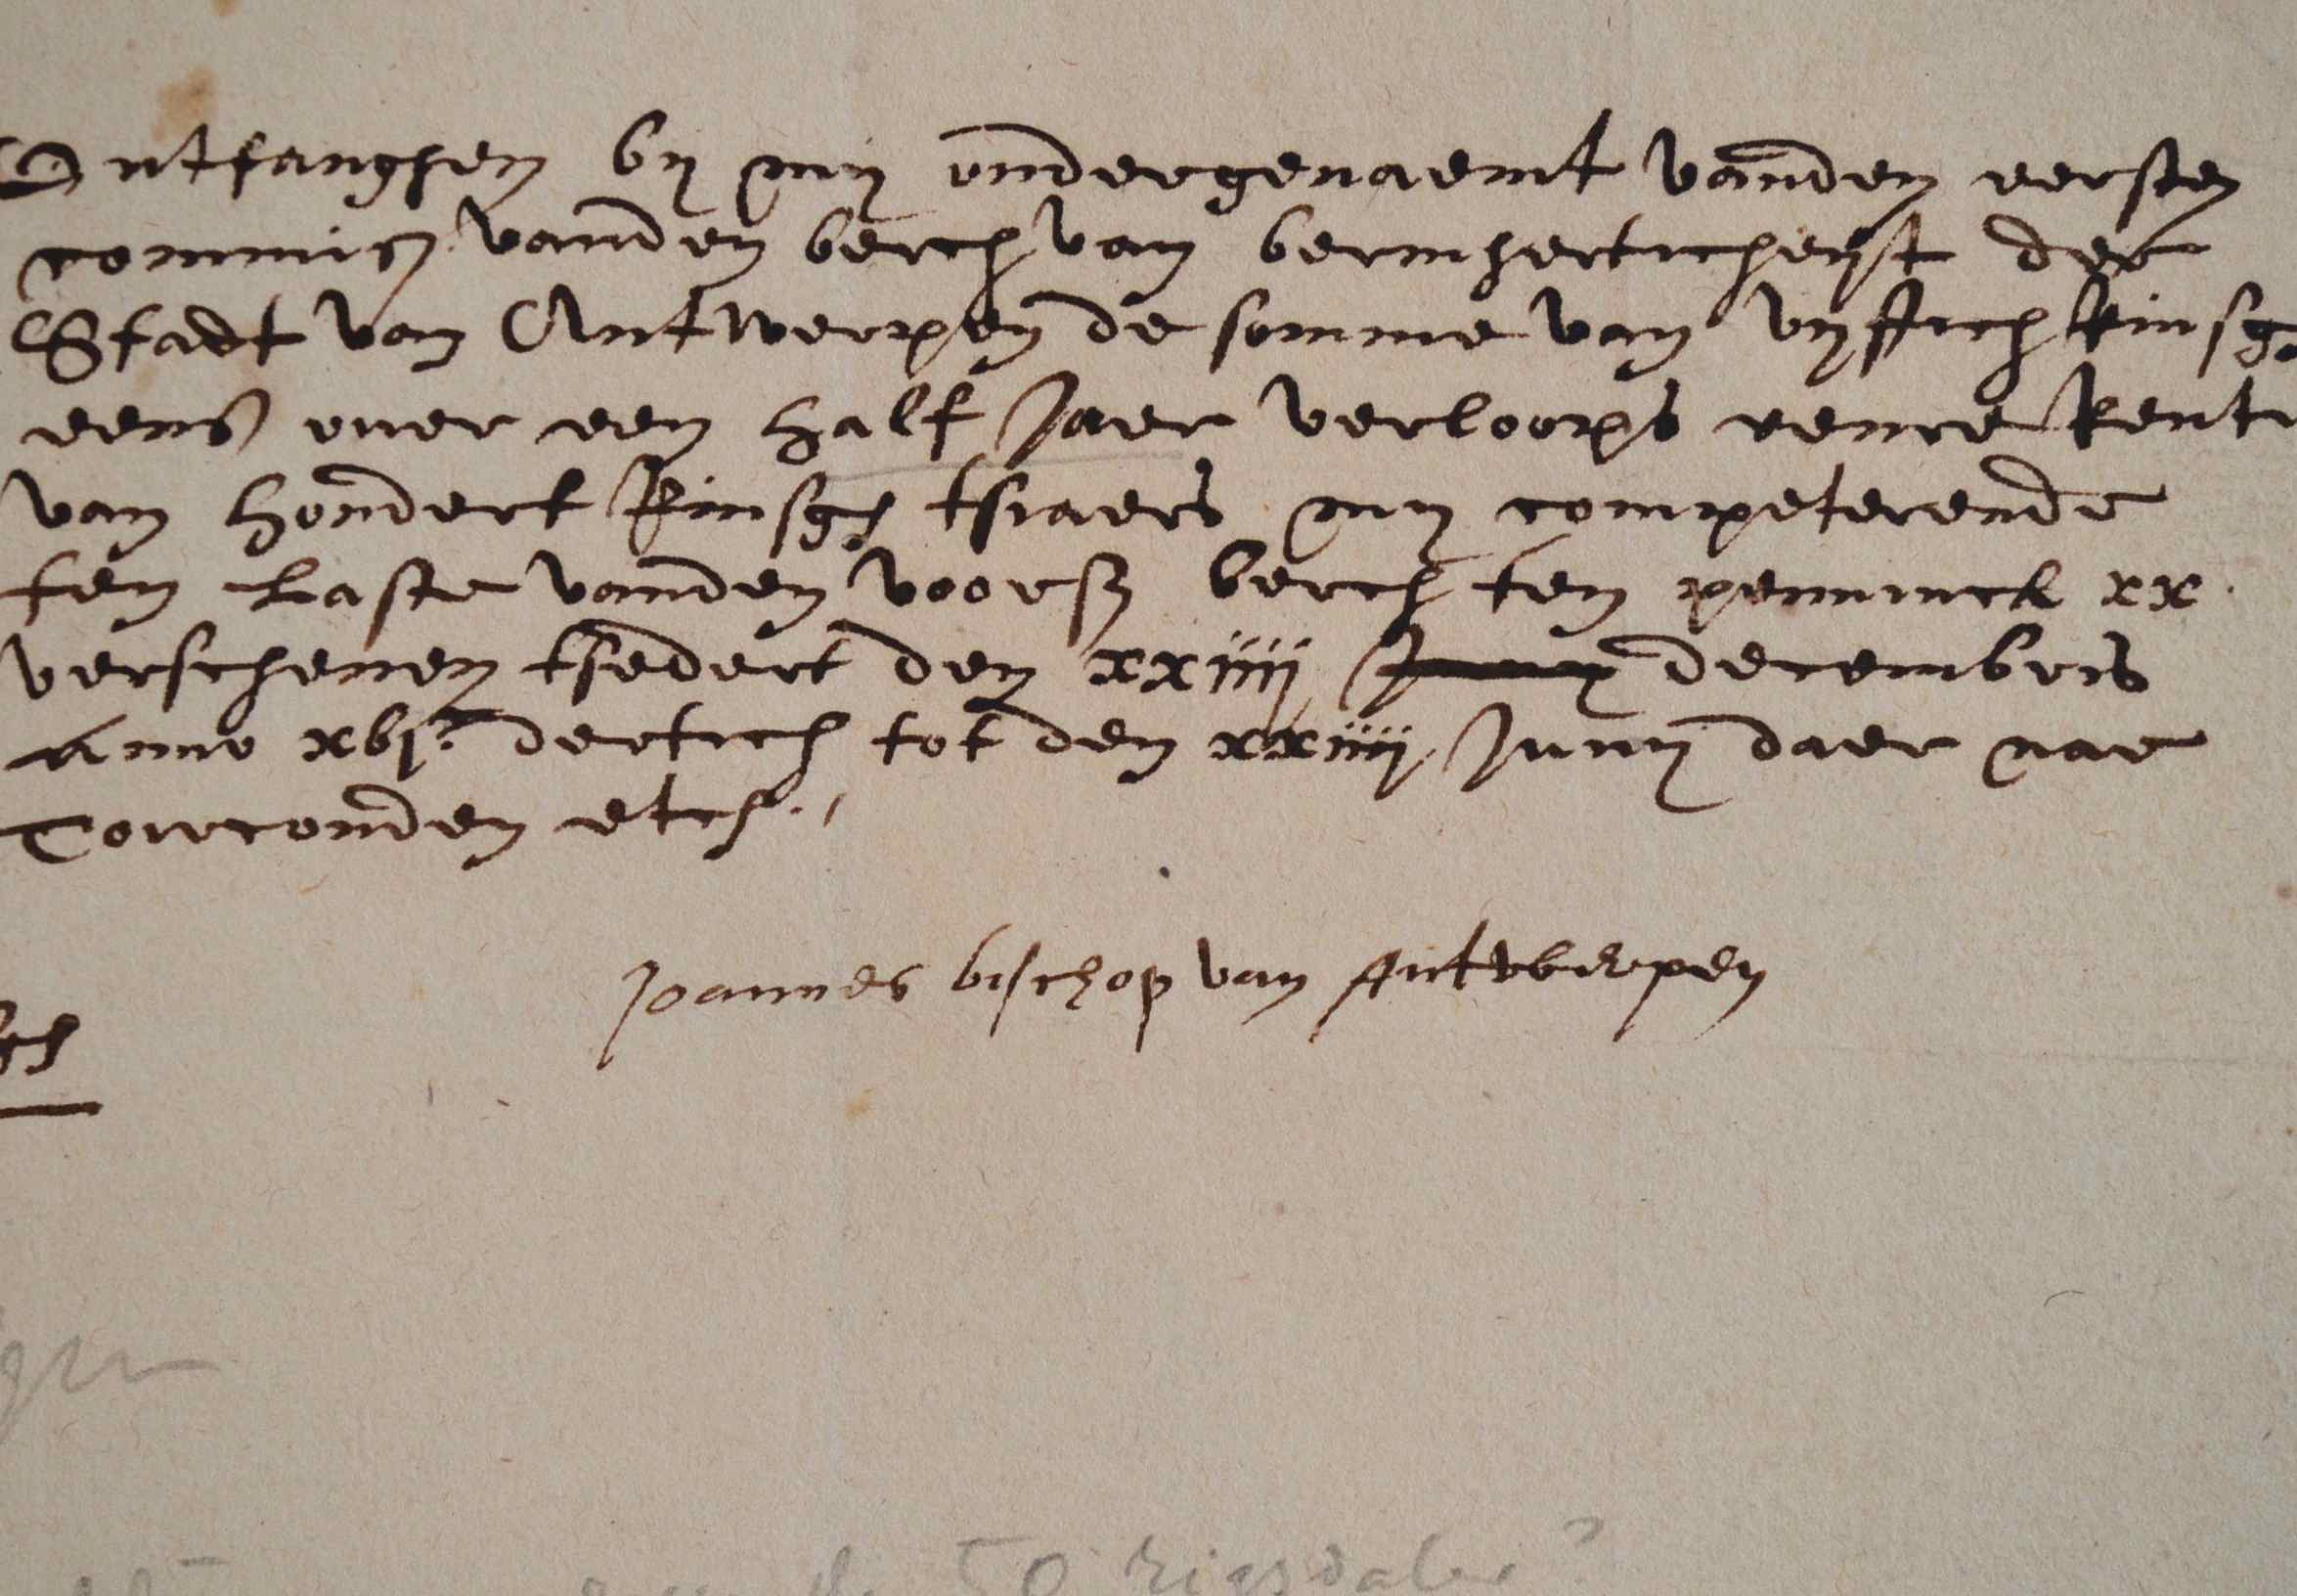 Ontfanghen by my ondergenaemt vanden eersten
commis vanden berch van bermherticheyt der
Stadt van Antwerpen de somme van vyftich Rinsg.
eens over een half Jaer verloops eenre Rente
van hondert Rinsgl tsiaers my competerende
ten Laste vanden voors berch ten pennninck xx
verschenen tsedert den xxiiij Juny decembris
Anno xvjc dertich tot den xxiiij Juny daer nae
Toirconden etc.,
Joannes bischop van Antwerpen
50 rigsdaler?